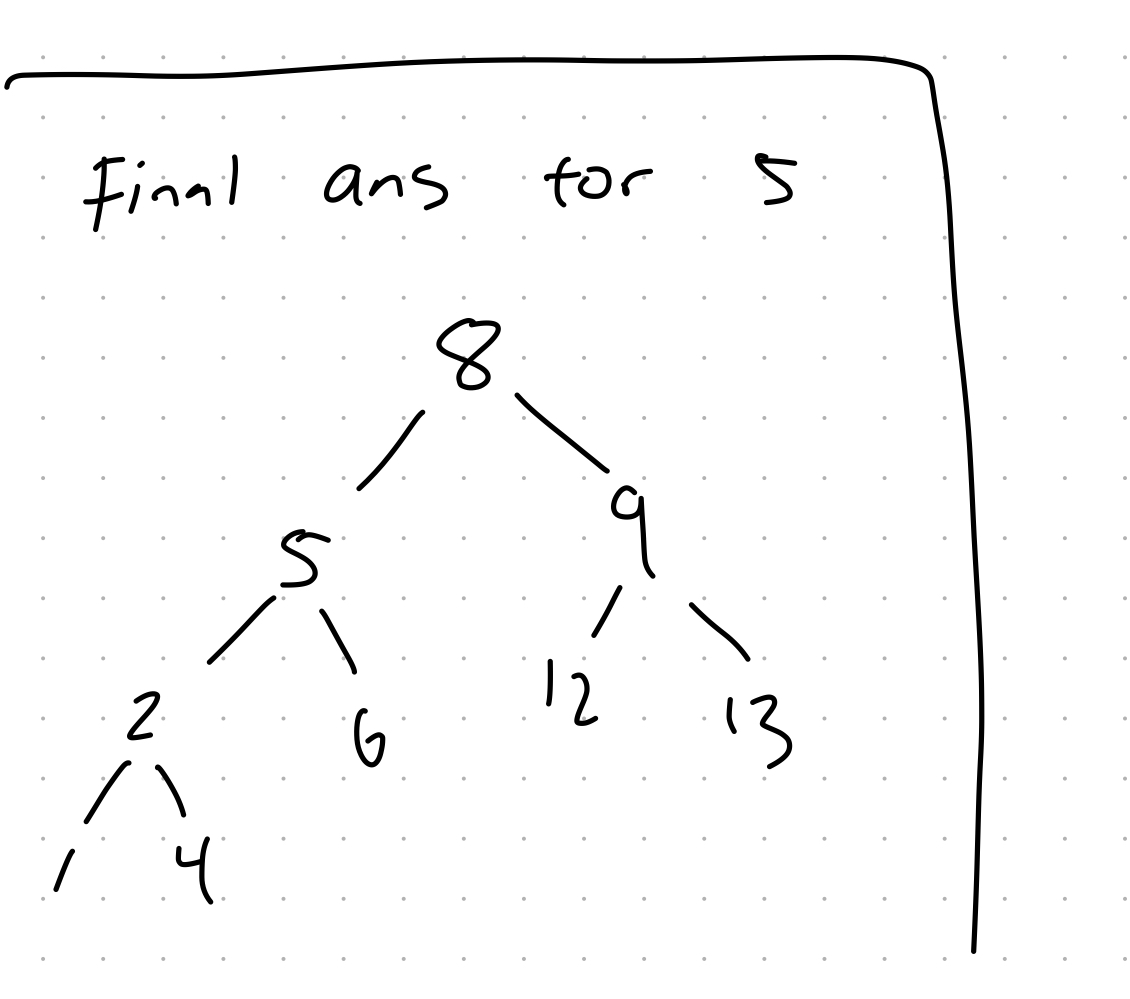 Final ans for 5
8
5 9
2 6 12 13
1 4